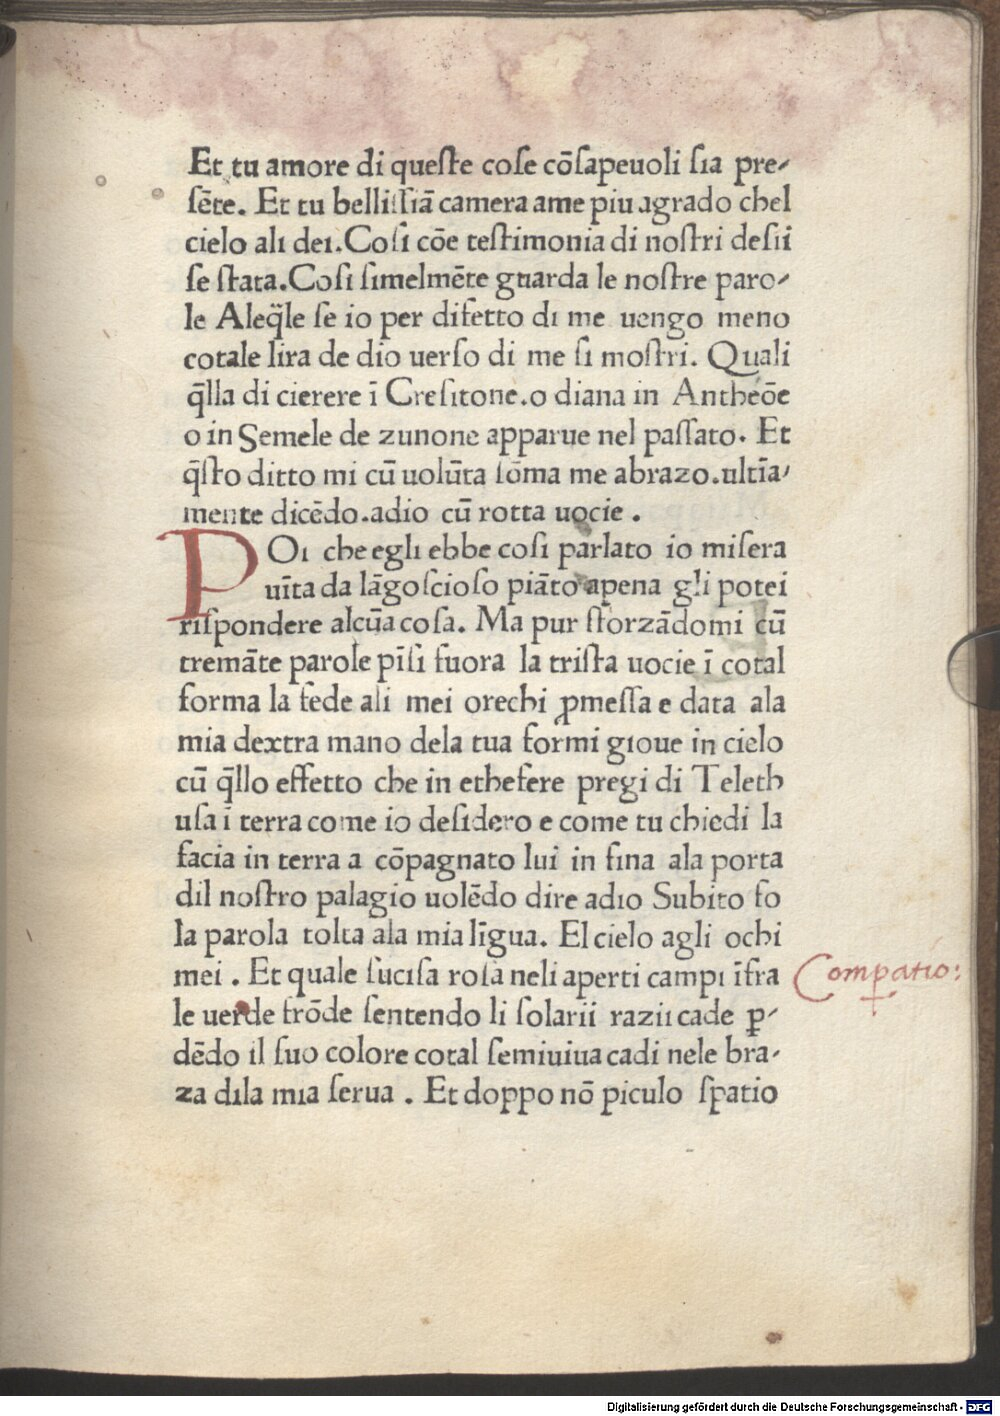 Et tu amore di queſte coſe cōſapeuoli ſia pre-
ſēte. Et tu belliſſiā camera ame piu agrado chel
cielo ali dei. Coſi cōe teſtimonia di noſtri deſii
ſe ſtata. Coſi ſimelmēte guarda le noſtre paro-
le Aleq̄le ſe io per difetto di me uengo meno
cotale lira de dio uerſo di me ſi moſtri. Quali
q̄lla di cierere ī Creſitone. o diana in Antheōe
o in Semele de zunone apparue nel paſſato. Et
q̄ſto ditto mi cū uolūta ſōma me abrazo. ultīa-
mente dicēdo. adio cū rotta uocie .
POi che egli ebbe coſi parlato io miſera
uīta da lāgoſcioſo piāto apena gli potei
riſpondere alcūa coſa. Ma pur ſforzādomi cū
tremāte parole pīſi fuora la triſta uocie ī cotal
forma la fede ali mei orechi ꝓmeſſa e data ala
mia dextra mano dela tua formi gioue in cielo
cū q̄llo effetto che in etheſere pregi di Teleth
uſa ī terra come io deſidero e come tu chiedi la
facia in terra a cōpagnato lui in fina ala porta
dil noſtro palagio uolēdo dire adio Subito fo
la parola tolta ala mia līgua. El cielo agli ochi
mei . Et quale ſuciſa roſa neli aperti campi īfra
Comꝑatio:
le uerde frōde ſentendo li ſolarii razii cade ꝑ-
dēdo il ſuo colore cotal ſemiuiua cadi nele bra-
za dila mia ſerua . Et doppo nō piculo ſpatio
Digitalisierung gefördert durch die Deutsche Forschungsgemeinschaft - DFG